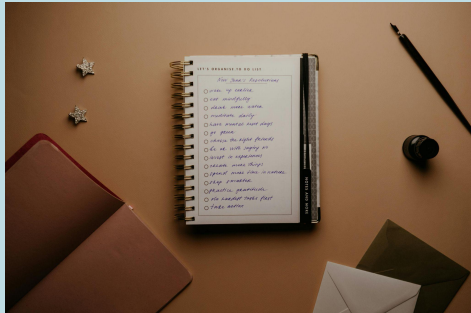 LET'S ORGANISE TO-DO LIST
New Year's Resolutions
wake up earlier
eat mindfully
drink more water
meditate daily
have monthly rest days
go green
choose the right friends
be ok with saying no
invest in experiences
create more things
spend more time in nature
shop smarter
practice gratitude
do hardest tasks first
take notes
NOTES AND MORE